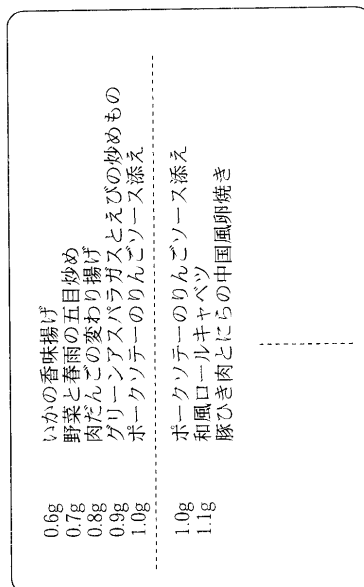 0.6g いかの香味揚げ
0.7g 野菜と春雨の五目炒め
0.8g 肉だんごの変わり揚げ
0.9g グリーンアスパラガスとえびの炒めもの
1.0g ポークソテーのりんごソース添え
1.0g ポークソテーのりんごソース添え
1.1g 和風ロールキャベツ
豚ひき肉とにらの中国風卵焼き